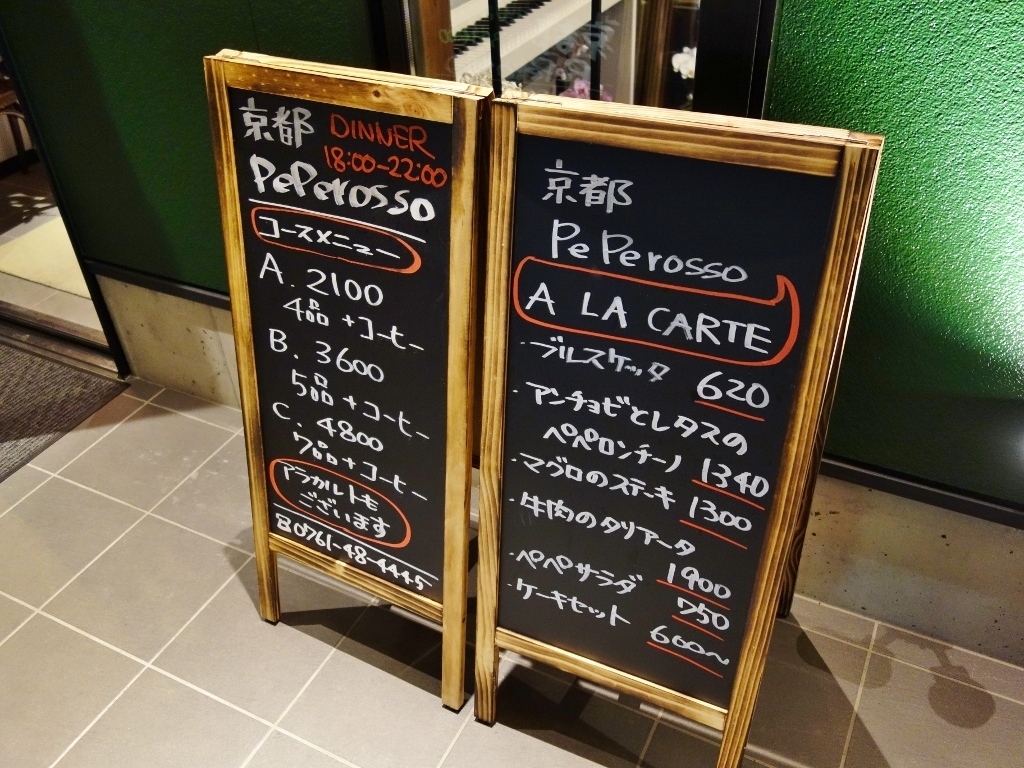 京都 DINNER
18:00-22:00
PePerosso
コースメニュー
A. 2100
4品 + コーヒー
B. 3600
5品 + コーヒー
C. 4800
7品 + コーヒー
アラカルトも
ございます
☎0761-48-4445
京都
PePerosso
A LA CARTE
・ブルスケッタ 620
・アンチョビとレタスの
ペペロンチーノ 1340
・マグロのステーキ 1300
・牛肉のタリアータ
1900
・ペペサラダ 750
・ケーキセット 600〜